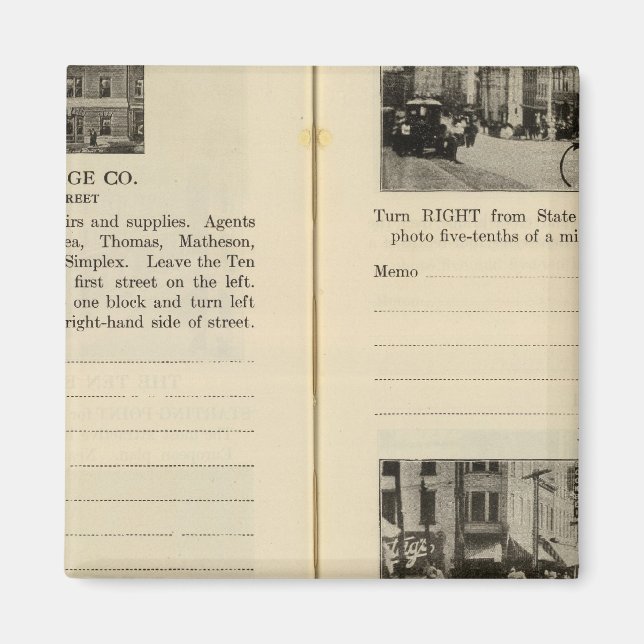 GE CO.
REET
irs and supplies. Agents
ea, Thomas, Matheson,
Simplex. Leave the Ten
first street on the left.
one block and turn left
right-hand side of street.
Turn RIGHT from State
photo five-tenths of a mi
Memo
THE TEN E
STARTING POINT for
European plan. N